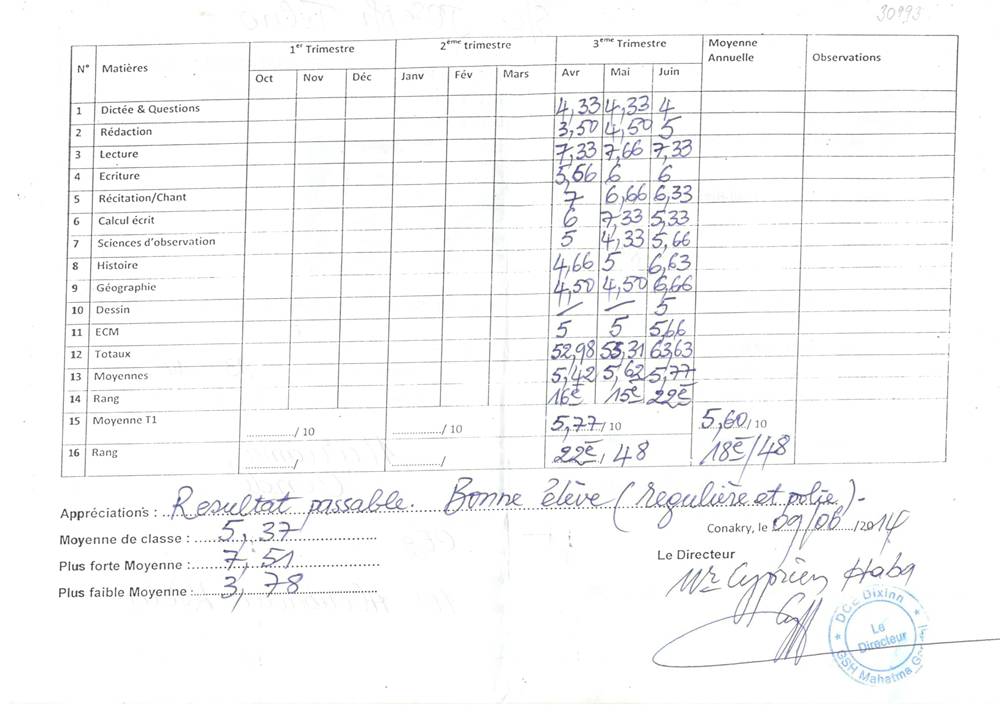 30993
N° Matières 1er Trimestre 2ème trimestre 3eme Trimestre Moyenne Annuelle Observations
Oct Nov Déc Janv Fév Mars Avr Mai Juin
1 Dictée & Questions 4,33 4,33 4
2 Rédaction 3,50 4,50 5
3 Lecture 7,33 7,66 7,33
4 Ecriture 5,66 6 6
5 Récitation/Chant 7 6,66 6,33
6 Calcul écrit 6 7,33 5,33
7 Sciences d'observation 5 4,33 5,66
8 Histoire 4,66 5 6,63
9 Géographie 4,50 4,50 6,66
10 Dessin — — 5
11 ECM 5 5 5,66
12 Totaux 52,98 55,31 63,63
13 Moyennes 5,42 5,62 5,77
14 Rang 16e 15e 22e
15 Moyenne T1 ............../ 10 ............../ 10 5,77/ 10 5,60/ 10
16 Rang ............../ ............../ 22e/ 48 18e/48
Appréciations : Resultat passable. Bonne élève (regulière et polie).
Conakry, le 09/06/2014
Moyenne de classe : 5,37
Plus forte Moyenne : 7,51
Plus faible Moyenne : 3,78
Le Directeur
Mr Cyprien Haba
DCE Dixinn
Le Directeur
GSH Mahatma